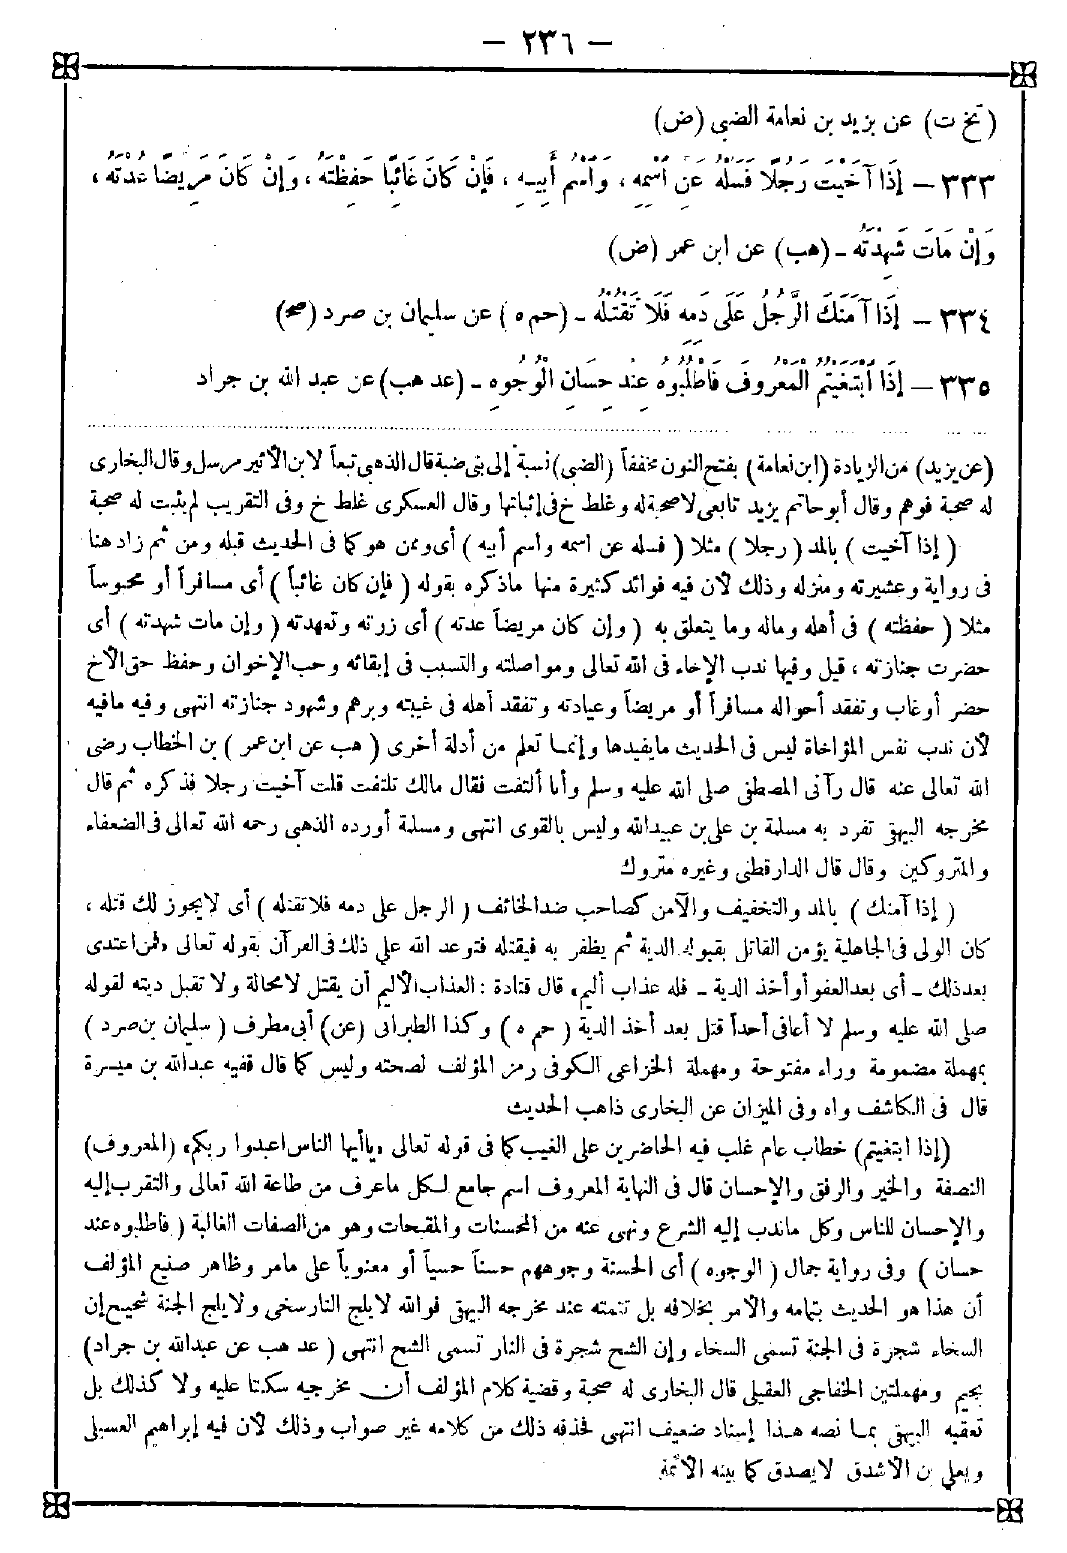 — ٢٣٦ —
(تخ ت) عن يزيد بن نعامة الضبي (ض)
٣٣٣ – إِذَا آخَيْتَ رَجُلًا فَسَلْهُ عَنِ اسْمِهِ ، وَاسْمِ أَبِيهِ ، فَإِنْ كَانَ غَائِبًا حَفِظْتَهُ ، وَإِنْ كَانَ مَرِيضًا عُدْتَهُ ،
وَإِنْ مَاتَ شَهِدْتَهُ – (هب) عن ابن عمر (ض)
٣٣٤ – إِذَا آمَنَكَ الرَّجُلُ عَلَى دَمِهِ فَلَا تَقْتُلْهُ – (حم ه) عن سليمان بن صرد (صح)
٣٣٥ – إِذَا ابْتَغَيْتُمُ الْمَعْرُوفَ فَاطْلُبُوهُ عِنْدَ حِسَانِ الْوُجُوهِ – (عد هب) عن عبد الله بن جراد
(عن يزيد) من الزيادة (ابن نعامة) بفتح النون مخففاً (الضبي) نسبة إلى بنى ضبة قال الذهبي تبعاً لابن الأثير مرسل وقال البخارى
له صحبة فوهم وقال أبو حاتم يزيد تابعى لا صحبة له وغلط خ فى إثباتها وقال العسكرى غلط خ وفى التقريب لم يثبت له صحبة
( إذا آخيت ) بالمد ( رجلا ) مثلا ( فسله عن اسمه واسم أبيه ) أى وممن هو كما فى الحديث قبله ومن ثم زاد هنا
فى رواية وعشيرته ومنزله وذلك لأن فيه فوائد كثيرة منها ماذكره بقوله ( فإن كان غائباً ) أى مسافراً أو محبوساً
مثلا ( حفظته ) فى أهله وماله وما يتعلق به ( وإن كان مريضاً عدته ) أى زرته وتعهدته ( وإن مات شهدته ) أى
حضرت جنازته ، قيل وفيها ندب الإخاء فى الله تعالى ومواصلته والتسبب فى إبقائه وحب الإخوان وحفظ حق الأخ
حضر أوغاب وتفقد أحواله مسافراً أو مريضاً وعيادته وتفقد أهله فى غيبته وبرهم وشهود جنازته انتهى وفيه مافيه
لأن ندب نفس المؤاخاة ليس فى الحديث مايفيدها وإنما تعلم من أدلة أخرى ( هب عن ابن عمر ) بن الخطاب رضى
الله تعالى عنه قال رآنى المصطفى صلى الله عليه وسلم وأنا ألتفت فقال مالك تلتفت قلت آخيت رجلا فذكره ثم قال
مخرجه البيهقى تفرد به مسلمة بن على بن عبيدالله وليس بالقوى انتهى ومسلمة أورده الذهبي رحمه الله تعالى فى الضعفاء
والمتروكين وقال قال الدارقطنى وغيره متروك
( إذا آمنك ) بالمد والتخفيف والآمن كصاحب ضد الخائف ( الرجل على دمه فلا تقتله ) أى لايجوز لك قتله ،
كان الولى فى الجاهلية يؤمن القاتل بقبوله الدية ثم يظفر به فيقتله فتوعد الله على ذلك فى القرآن بقوله تعالى «فمن اعتدى
بعد ذلك – أى بعد العفو أو أخذ الدية – فله عذاب أليم» قال قتادة : العذاب الأليم أن يقتل لامحالة ولا تقبل ديته لقوله
صلى الله عليه وسلم لا أعافى أحداً قتل بعد أخذ الدية ( حم ه ) وكذا الطبرانى (عن) أبى مطرف ( سليمان بن صرد )
بمهملة مضمومة وراء مفتوحة ومهملة الخزاعى الكوفى رمز المؤلف لصحته وليس كما قال ففيه عبدالله بن ميسرة
قال فى الكاشف واه وفى الميزان عن البخارى ذاهب الحديث
(إذا ابتغيتم) خطاب عام غلب فيه الحاضرين على الغيب كما فى قوله تعالى «ياأيها الناس اعبدوا ربكم» (المعروف)
النصفة والخير والرفق والإحسان قال فى النهاية المعروف اسم جامع لكل ماعرف من طاعة الله تعالى والتقرب إليه
والإحسان للناس وكل ماندب إليه الشرع ونهى عنه من المحسنات والمقبحات وهو من الصفات الغالبة ( فاطلبوه عند
حسان ) وفى رواية جمال ( الوجوه ) أى الحسنة وجوههم حسناً حسياً أو معنوياً على مامر وظاهر صنيع المؤلف
أن هذا هو الحديث بتمامه والأمر بخلافه بل تتمته عند مخرجه البيهقى فوالله لايلج النار سخى ولا يلج الجنة شحيح إن
السخاء شجرة فى الجنة تسمى السخاء وإن الشح شجرة فى النار تسمى الشح انتهى ( عد هب عن عبدالله بن جراد)
بجيم ومهملتين الخفاجى العقيلى قال البخارى له صحبة وقضية كلام المؤلف أن مخرجيه سكتا عليه ولا كذلك بل
تعقبه البيهقى بما نصه هذا إسناد ضعيف انتهى فحذفه ذلك من كلامه غير صواب وذلك لأن فيه إبراهيم العسيلى
ويعلى بن الأشدق لايصدق كما بينه الأئمة